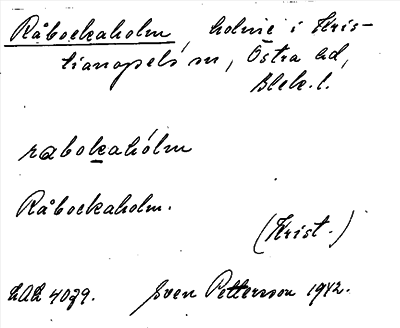 Råboekaholm, holme i Kris-
tianopels sn, Östra hd,
Blek. l.
rabokahólm
Råboekaholm.
(Krist.)
4079. Sven Petterson 1942.